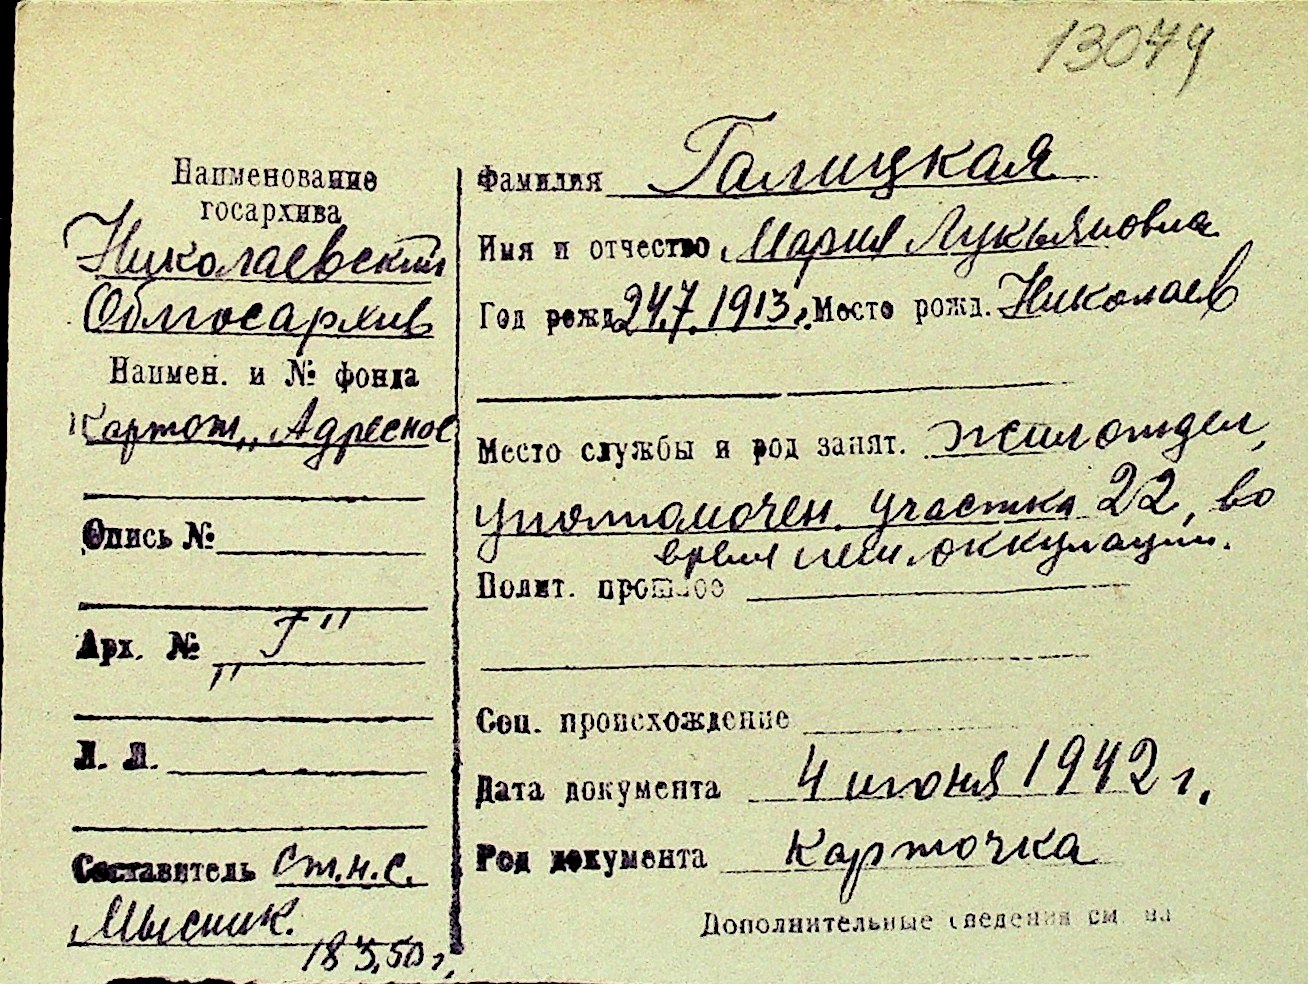 13079
Наименование
госархива
Николаевский
Облгосархив
Наимен. и № фонда
Картот. „Адресное
Опись №
Арх. № „Г"
Л. Л.
Составитель ст.н.с.
Мысник.
18 3,50 г.
Фамилия Галицкая
Имя и отчество Мария Лукьяновна
Год рожд 24.7.1913. Место рожд. Николаев
Место службы и род занят. жилотдел,
уполномочен. участка 22, во
время нем оккупации.
Полит. прошлое
Соц. происхождение
Дата документа 4 июня 1942 г.
Род документа карточка
Дополнительные сведения см. на